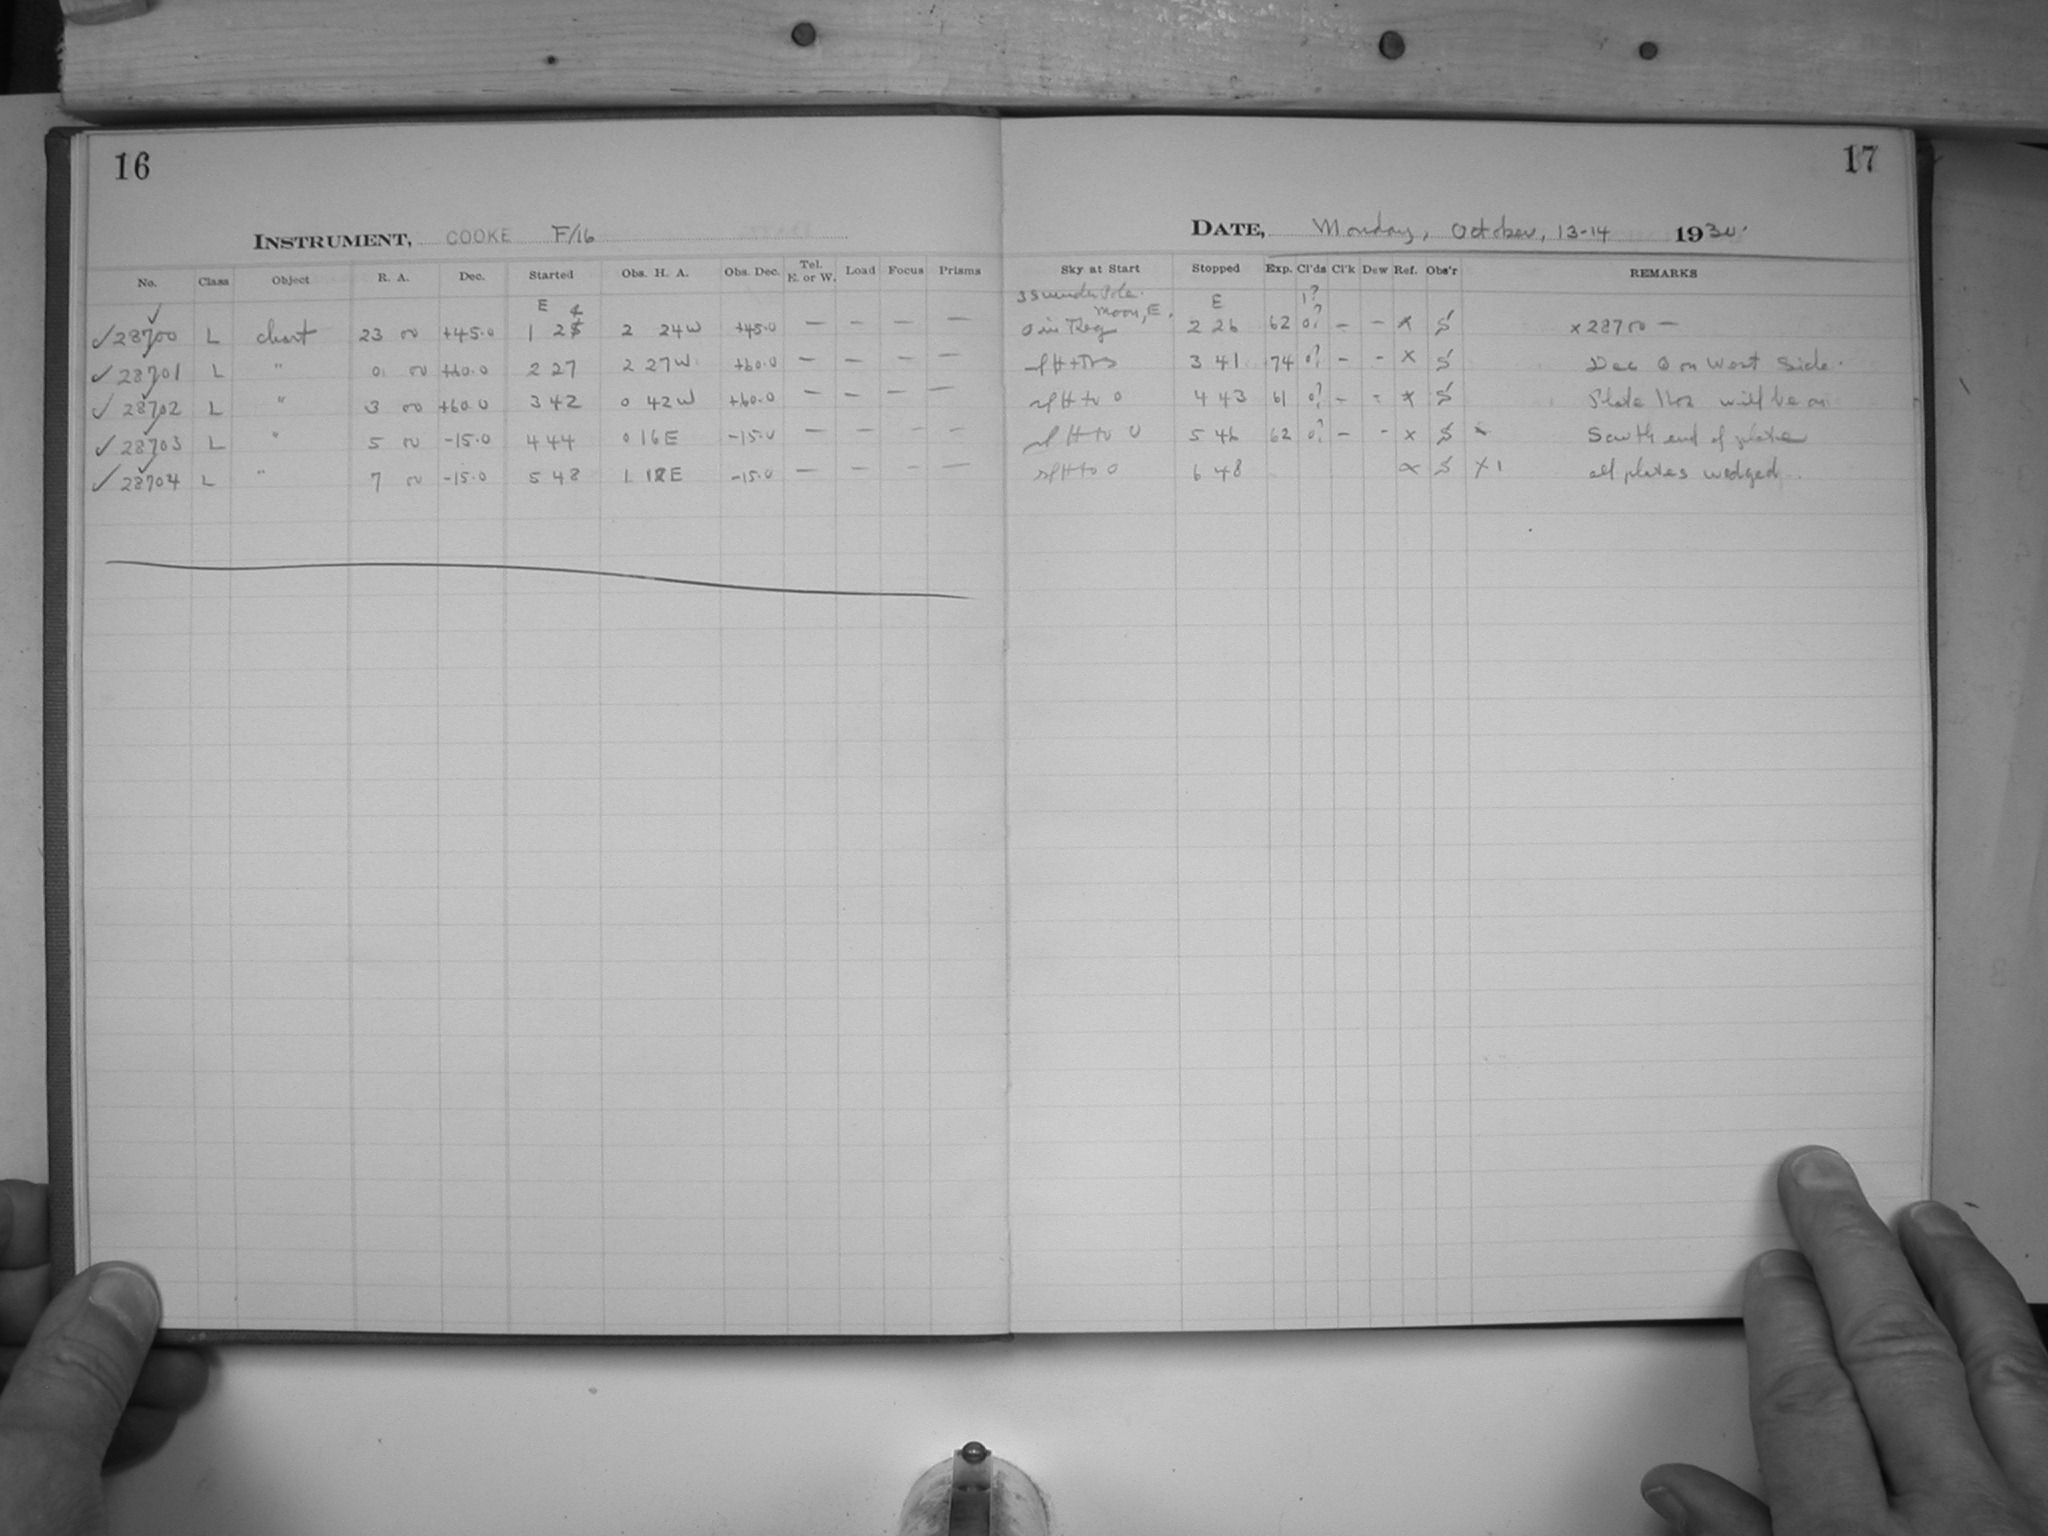 16
17
INSTRUMENT, COOKE F/16
DATE, Monday, October, 13-14 1930.
No. Class Object R. A. Dec. Started Obs. H. A. Obs. Dec. Tel. E. or W. Load Focus Prisms Sky at Start Stopped Exp. Cl'ds Cl'k Dew Ref. Obs'r REMARKS
E 4 Moon, E. E 1?
✓28700 L chart 23 00 +45.0 1 2 2 24W +45.0 — — — — — 2 26 62 0? – – x S x 28700 —
✓28701 L " 0 00 +60.0 2 27 2 27W +60.0 — — — — — 3 41 74 0? – – x S Dec 0 on West Side.
✓28702 L " 3 00 +60.0 3 42 0 42W +60.0 — — — — — to 0 4 43 61 0? – – x S Plate Nos will be on
✓28703 L " 5 00 -15.0 4 44 0 16E -15.0 — — — – — to 0 5 46 62 0? – – x S x South end of plate
✓28704 L " 7 00 -15.0 5 48 1 18E -15.0 — — — – — to 0 6 48 x S x1 all plates wedged.